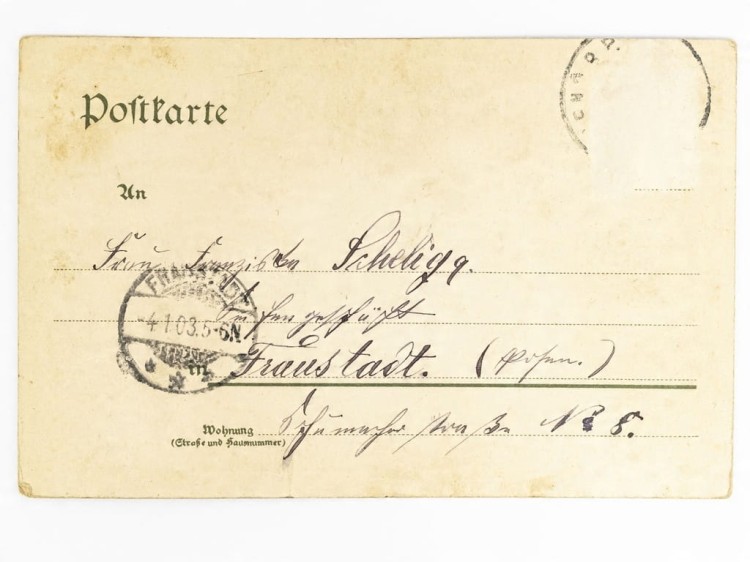 Postkarte
An
Frau Franziska Scheligg.
Seifengeschäft
FRAUSTADT
-4.1.03.5-6N
in Fraustadt. (Posen.)
Wohnung
(Straße und Hausnummer)
Schumacherstraße No 8.